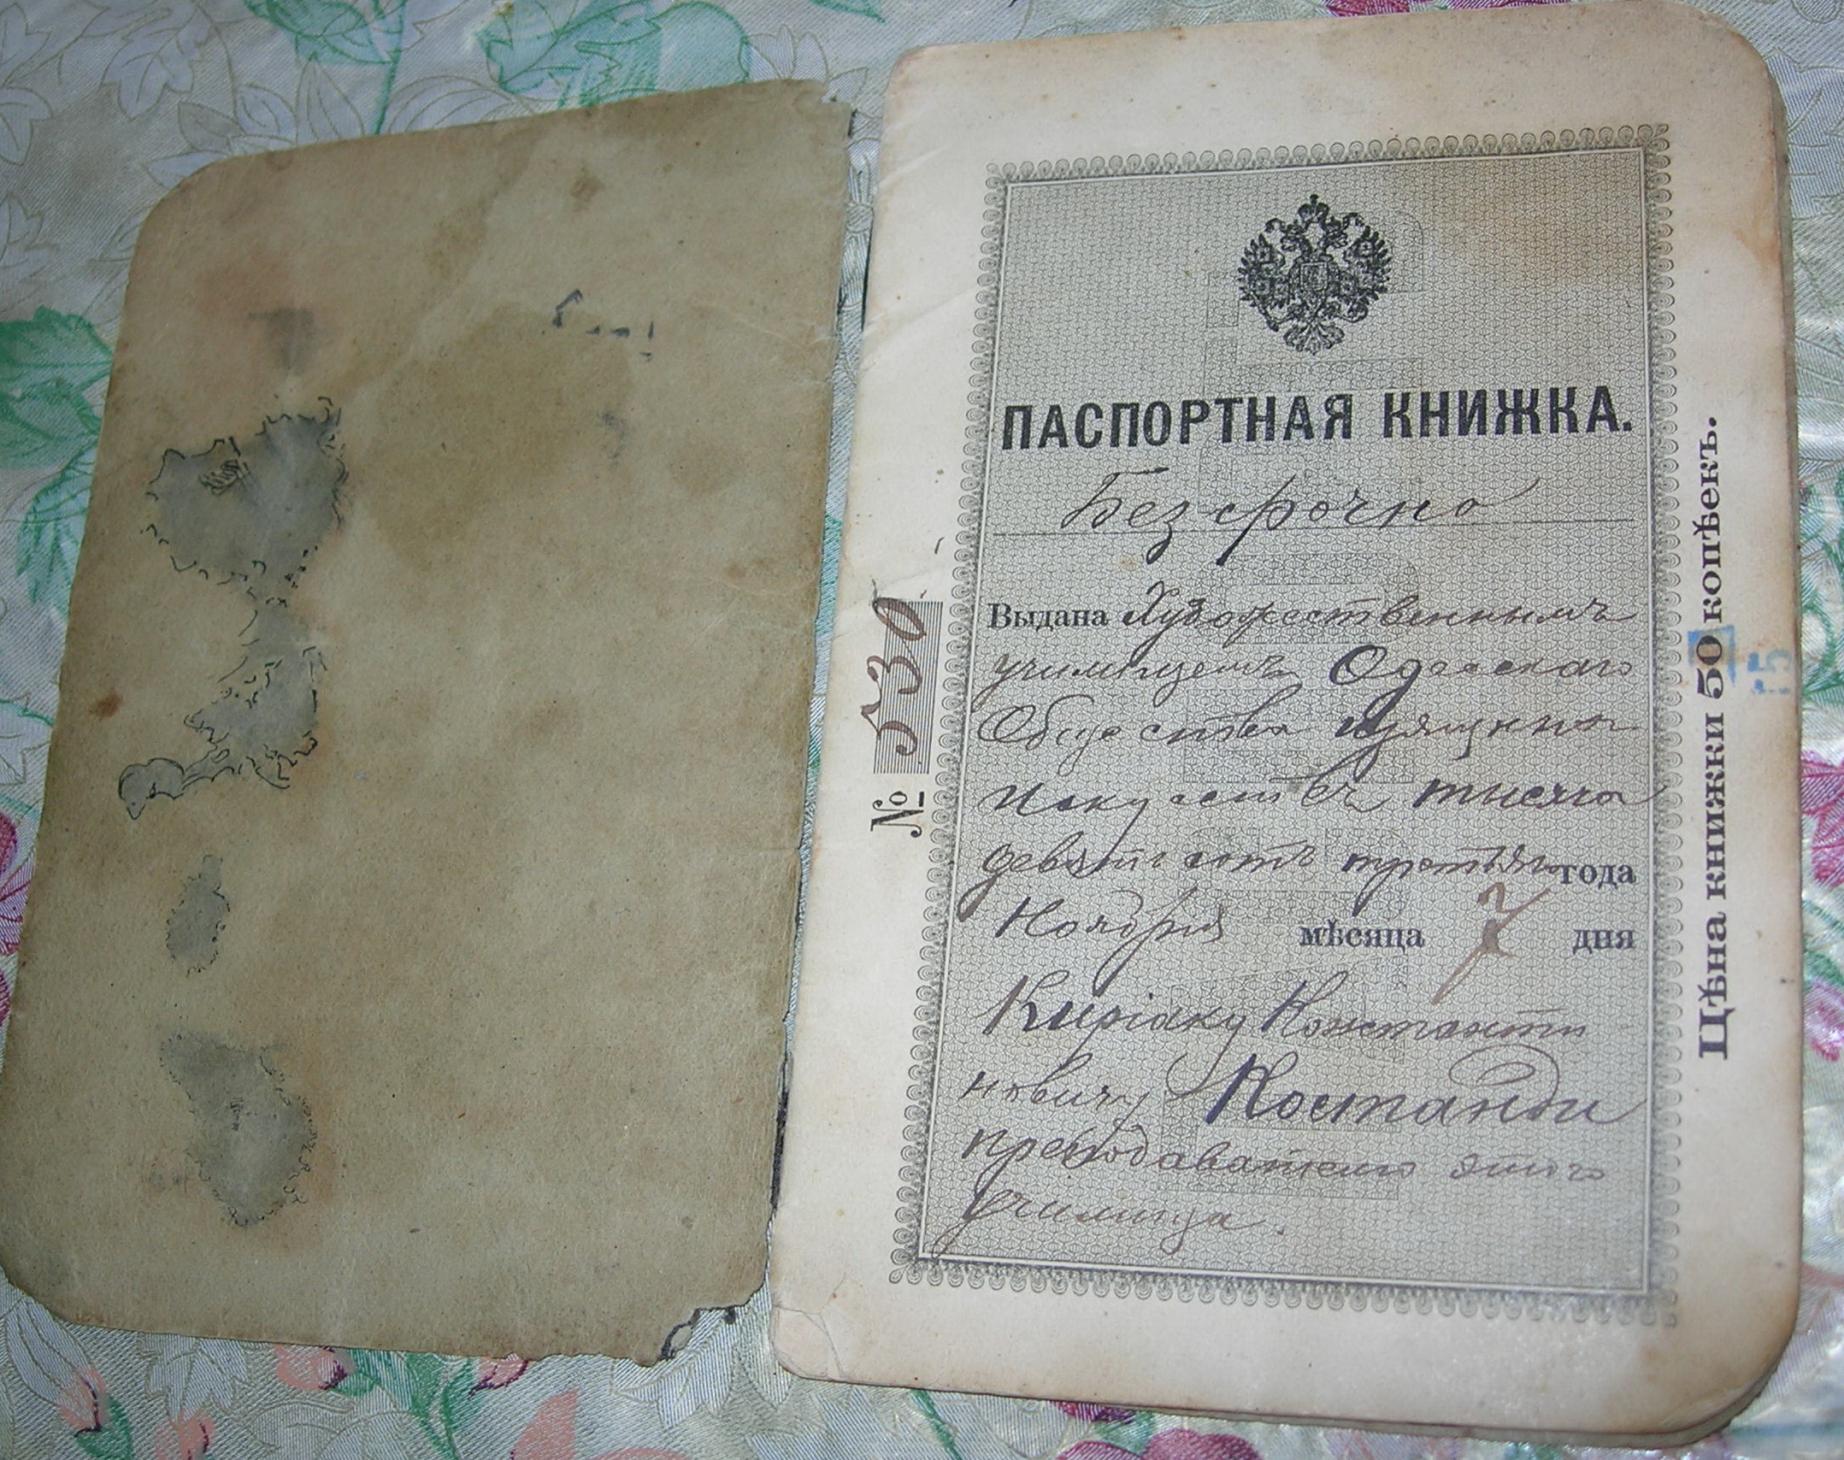 ПАСПОРТНАЯ КНИЖКА.
Безсрочно
Выдана Художественнымъ
училищемъ Одесскаго
Общества изящных
искусствъ тысяча
девятьсотъ третьяго года
Ноября мѣсяца 7 дня
Киріаку Константи
новичу Костанди
преподавателю этого
училища.
№ 530
Цѣна книжки 50 копѣекъ.